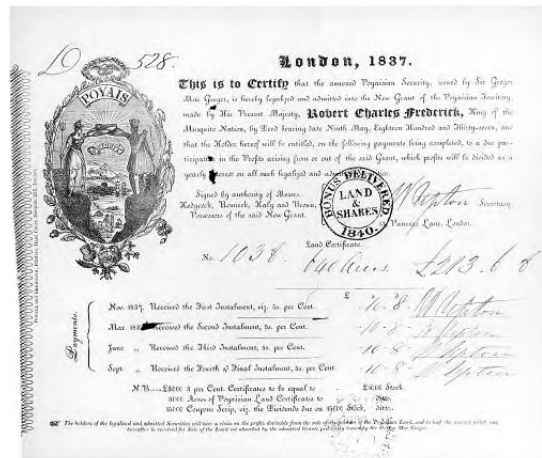 D 528.
London, 1837.
POYAIS
This is to Certify that the annexed Poyaisian Security, issued by Sir Gregor
Mac Gregor, is hereby legalized and admitted into the New Grant of the Poyaisian Territory,
made by His Present Majesty, Robert Charles Frederick, King of the
Mosquito Nation, by Deed bearing date Ninth May, Eighteen Hundred and Thirty-seven, and
that the Holder hereof will be entitled, on the following payments being completed, to a due par-
ticipation in the Profits arising from or out of the said Grant, which profits will be divided as a
yearly on all such legalized and
Signed by authority of Messrs.
Hedgcock, Rennick, Haly and Brown,
Possessors of the said New Grant.
BONUS DELIVERED
LAND & SHARES
1840.
W Upton Secretary
Pancras Lane, London.
Land Certificate.
No. 1038. 640 Acres £213. 6 8
Payments:
£
Nov. 1837. Received the First Instalment, viz. 5s. per Cent. 10 8 W Upton
Mar. Received the Second Instalment, 5s. per Cent. 10 - 8 - W Upton
June „ Received the Third Instalment, 5s. per Cent. 10 - 8 W Upton
Sept. „ Received the Fourth & Final Instalment, 5s. per Cent. 10 - 8 W Upton
N.B. 3 per Cent. Certificates to be equal to Stock.
Acres of Poyaisian Land Certificates to ditto.
Coupons Scrip, viz. the Dividends due on Stock, ditto.
The holders of the legalized and admitted Securities will have a claim on the profits derivable from the sale of the Poyaisian Land, and